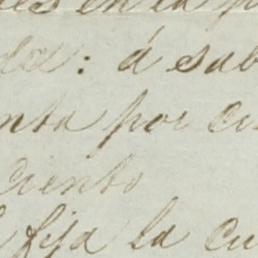 en la p
: á sab
nta por ci
ciento
fija la cu